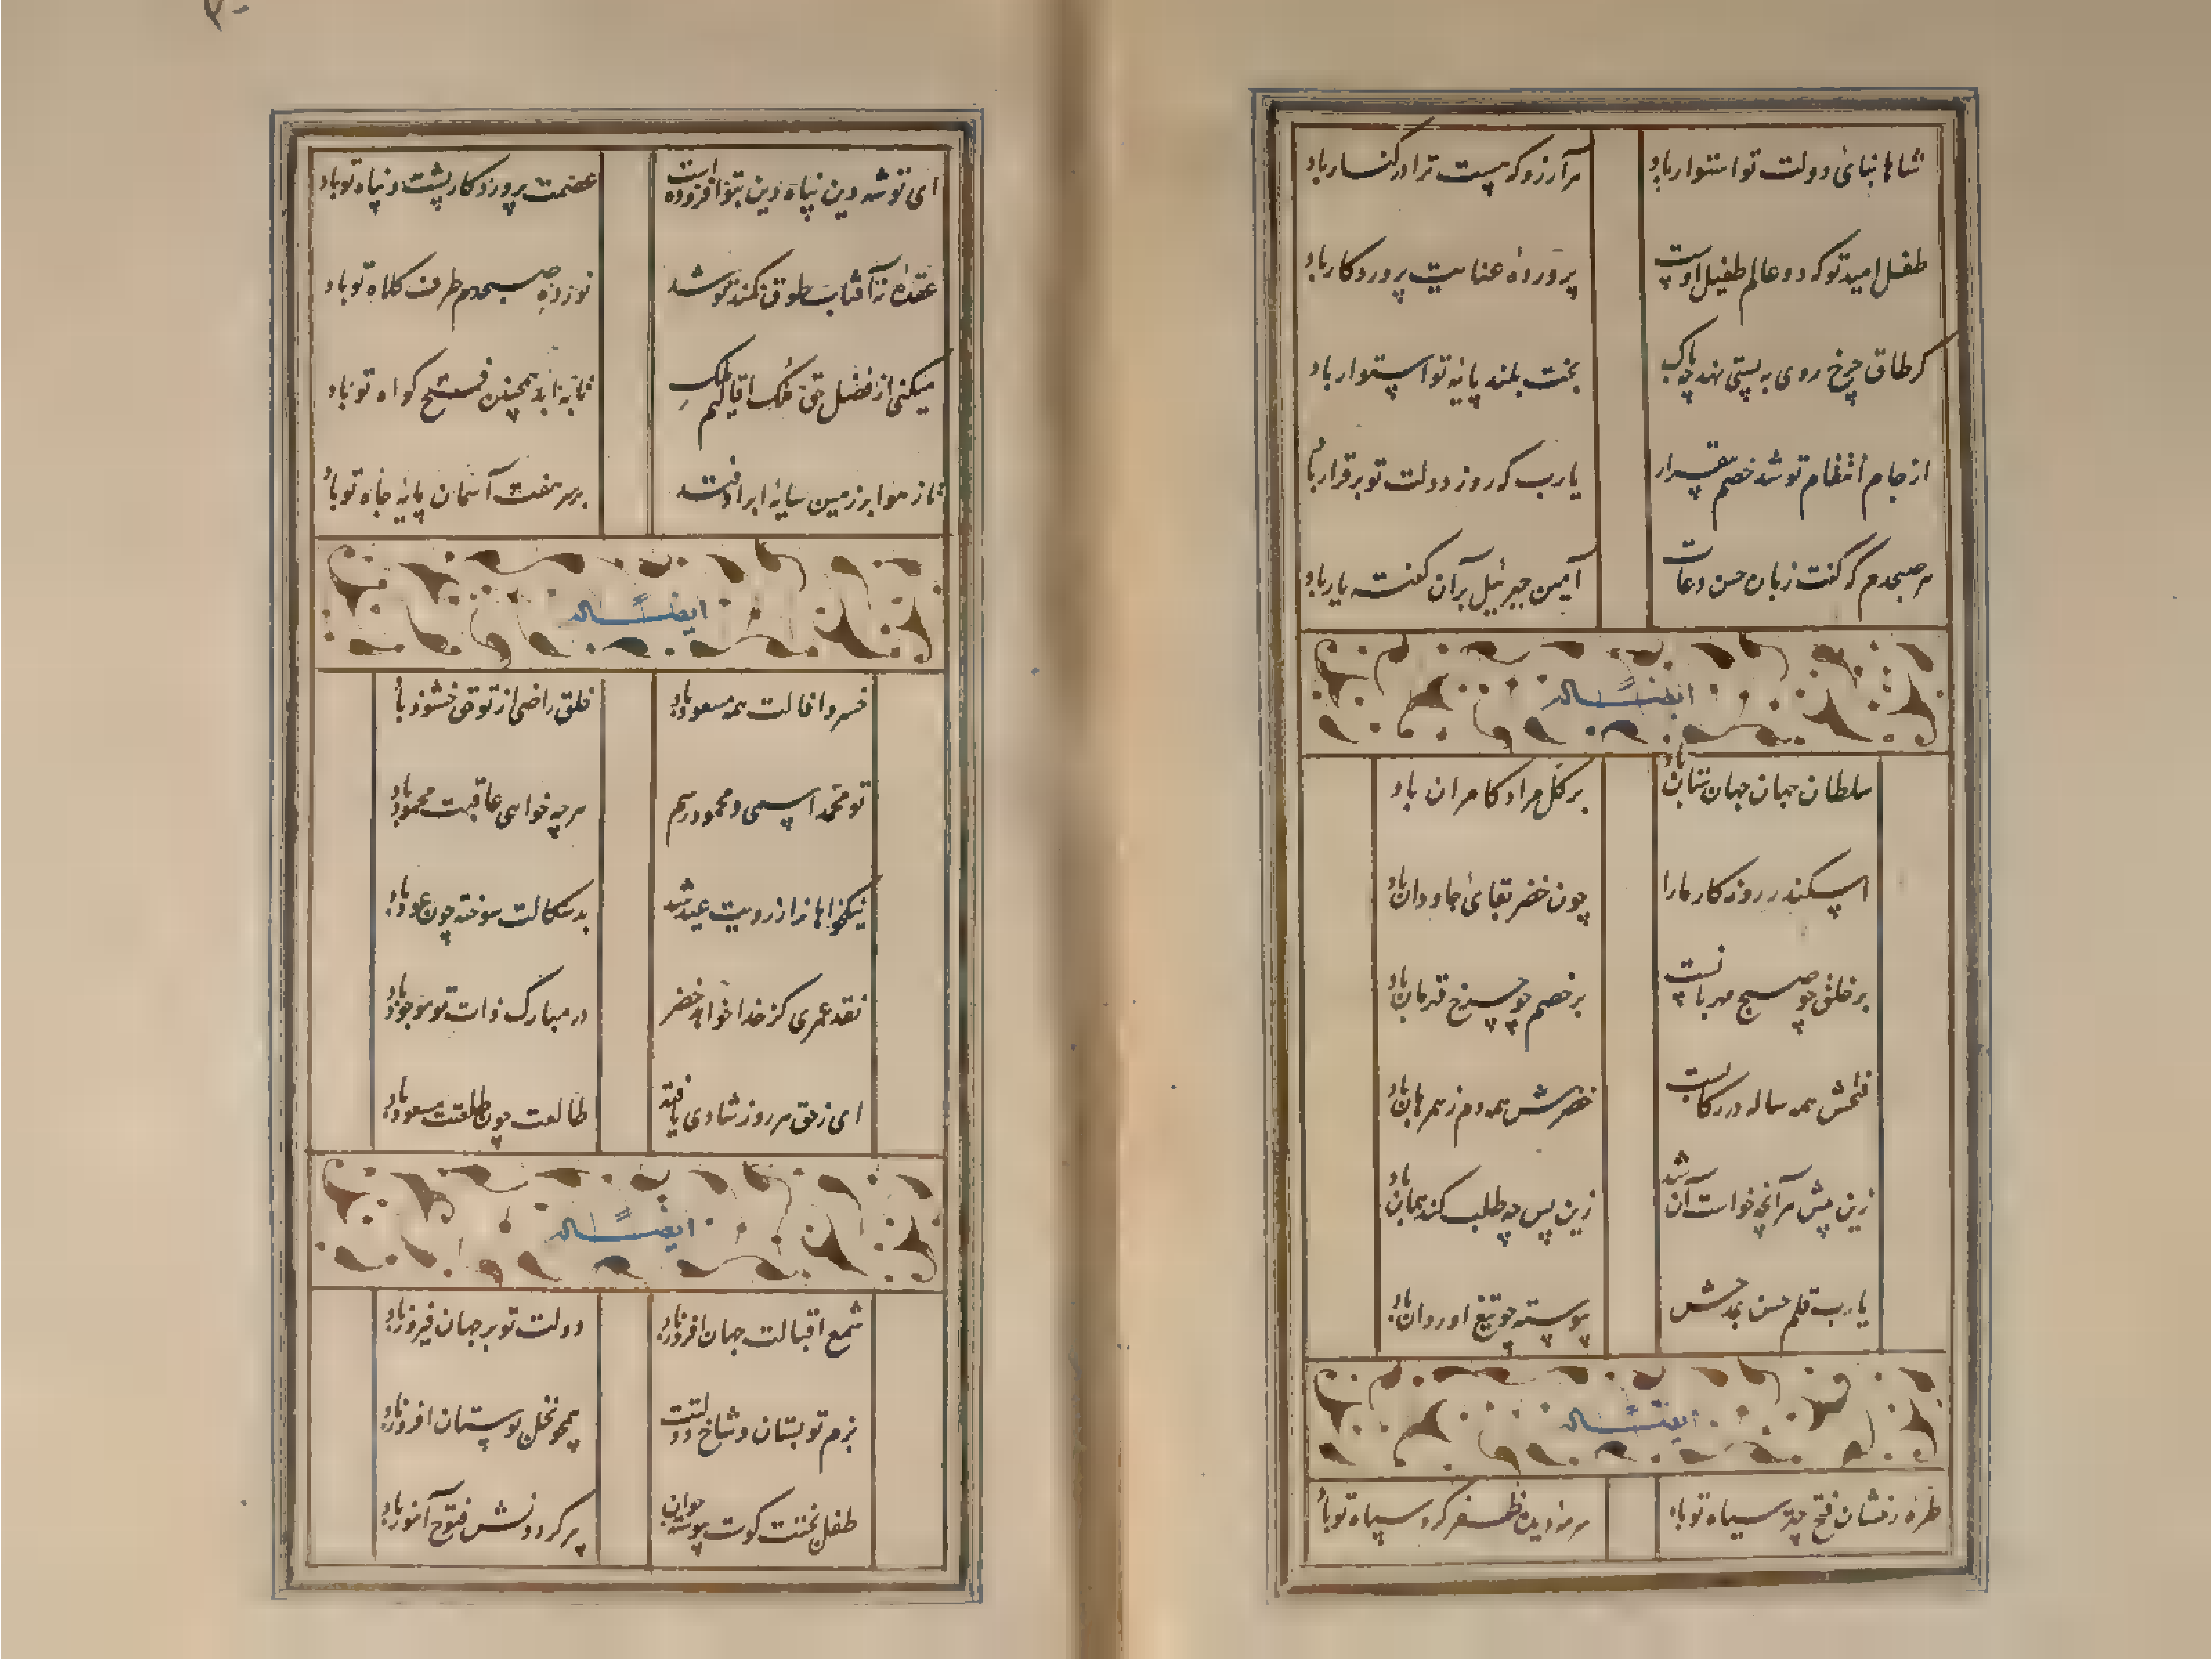 شاها بنائ دولت تو استوار باد
هر آرزو که هست ترا در کنار باد
طفل امید تو که دو عالم طفیل اوست
پرورده عنایت پروردگار باد
گر طاق چرخ روی به پستی نهد چه باک
بخت بلند پایهٔ تو استوار باد
از جام انتظام تو شد خصم بیقرار
یارب که روز دولت تو برقرار باد
هر صبحدم که گفت زبان حسن دعات
آمین جبرئیل بر آن گفته یار باد
ایضاً له
سلطان جهان جهان ستان باد
بر کل مراد کامران باد
اسکندر روزگار ما را
چون خضر بقائ جاودان باد
بر خلق چو صبح مهربانست
بر خصم چو چرخ قهرمان باد
فتحش همه ساله در رکابست
خضرش همه دم ز همرهان باد
زین پیش هر آنچه خواست آن شد
زین پس چه طلب کند همان باد
یارب قلم حسن بمدحش
پیوسته چو تیغ او روان باد
ایضاً له
طره رخشان فتح چتر سیاه تو باد
سرمه دیده ظفر گرد سپاه تو باد
ای تو شه دین پناه دین بتو افزوده است
عصمت پروردگار پشت و پناه تو باد
عقده آفتاب طوق کمند تو شد
صبحدم طرف کلاه تو باد
میکنی از فضل حق ملک اقالیم
تا به ابد همچنین فتح گواه تو باد
تا ز هوا بر زمین سایهٔ ابر اوفتد
بر سر هفت آسمان پایهٔ جاه تو باد
ایضاً له
خسروا فالت همه مسعود باد
خلق راضی از تو حق خشنود باد
تو محمد اسمی و محمود رسم
هر چه خواهی عاقبت محمود باد
نیکخواهانرا ز رویت عید شد
بدسگالت سوخته چون عود باد
نقد عمری کز خدا خواهد خضر
در مبارک ذات تو موجود باد
ای ز حق هر روز شادی یافته
طالعت چون طلعتت مسعود باد
ایضاً له
شمع اقبالت جهان افروز باد
دولت تو بر جهان فیروز باد
بزم تو بستان و شاخ دولتت
همچو نخل بوستان افروز باد
طفل بختت کوست پیوسته جوان
پیر گردد دانش فتوح آموز باد